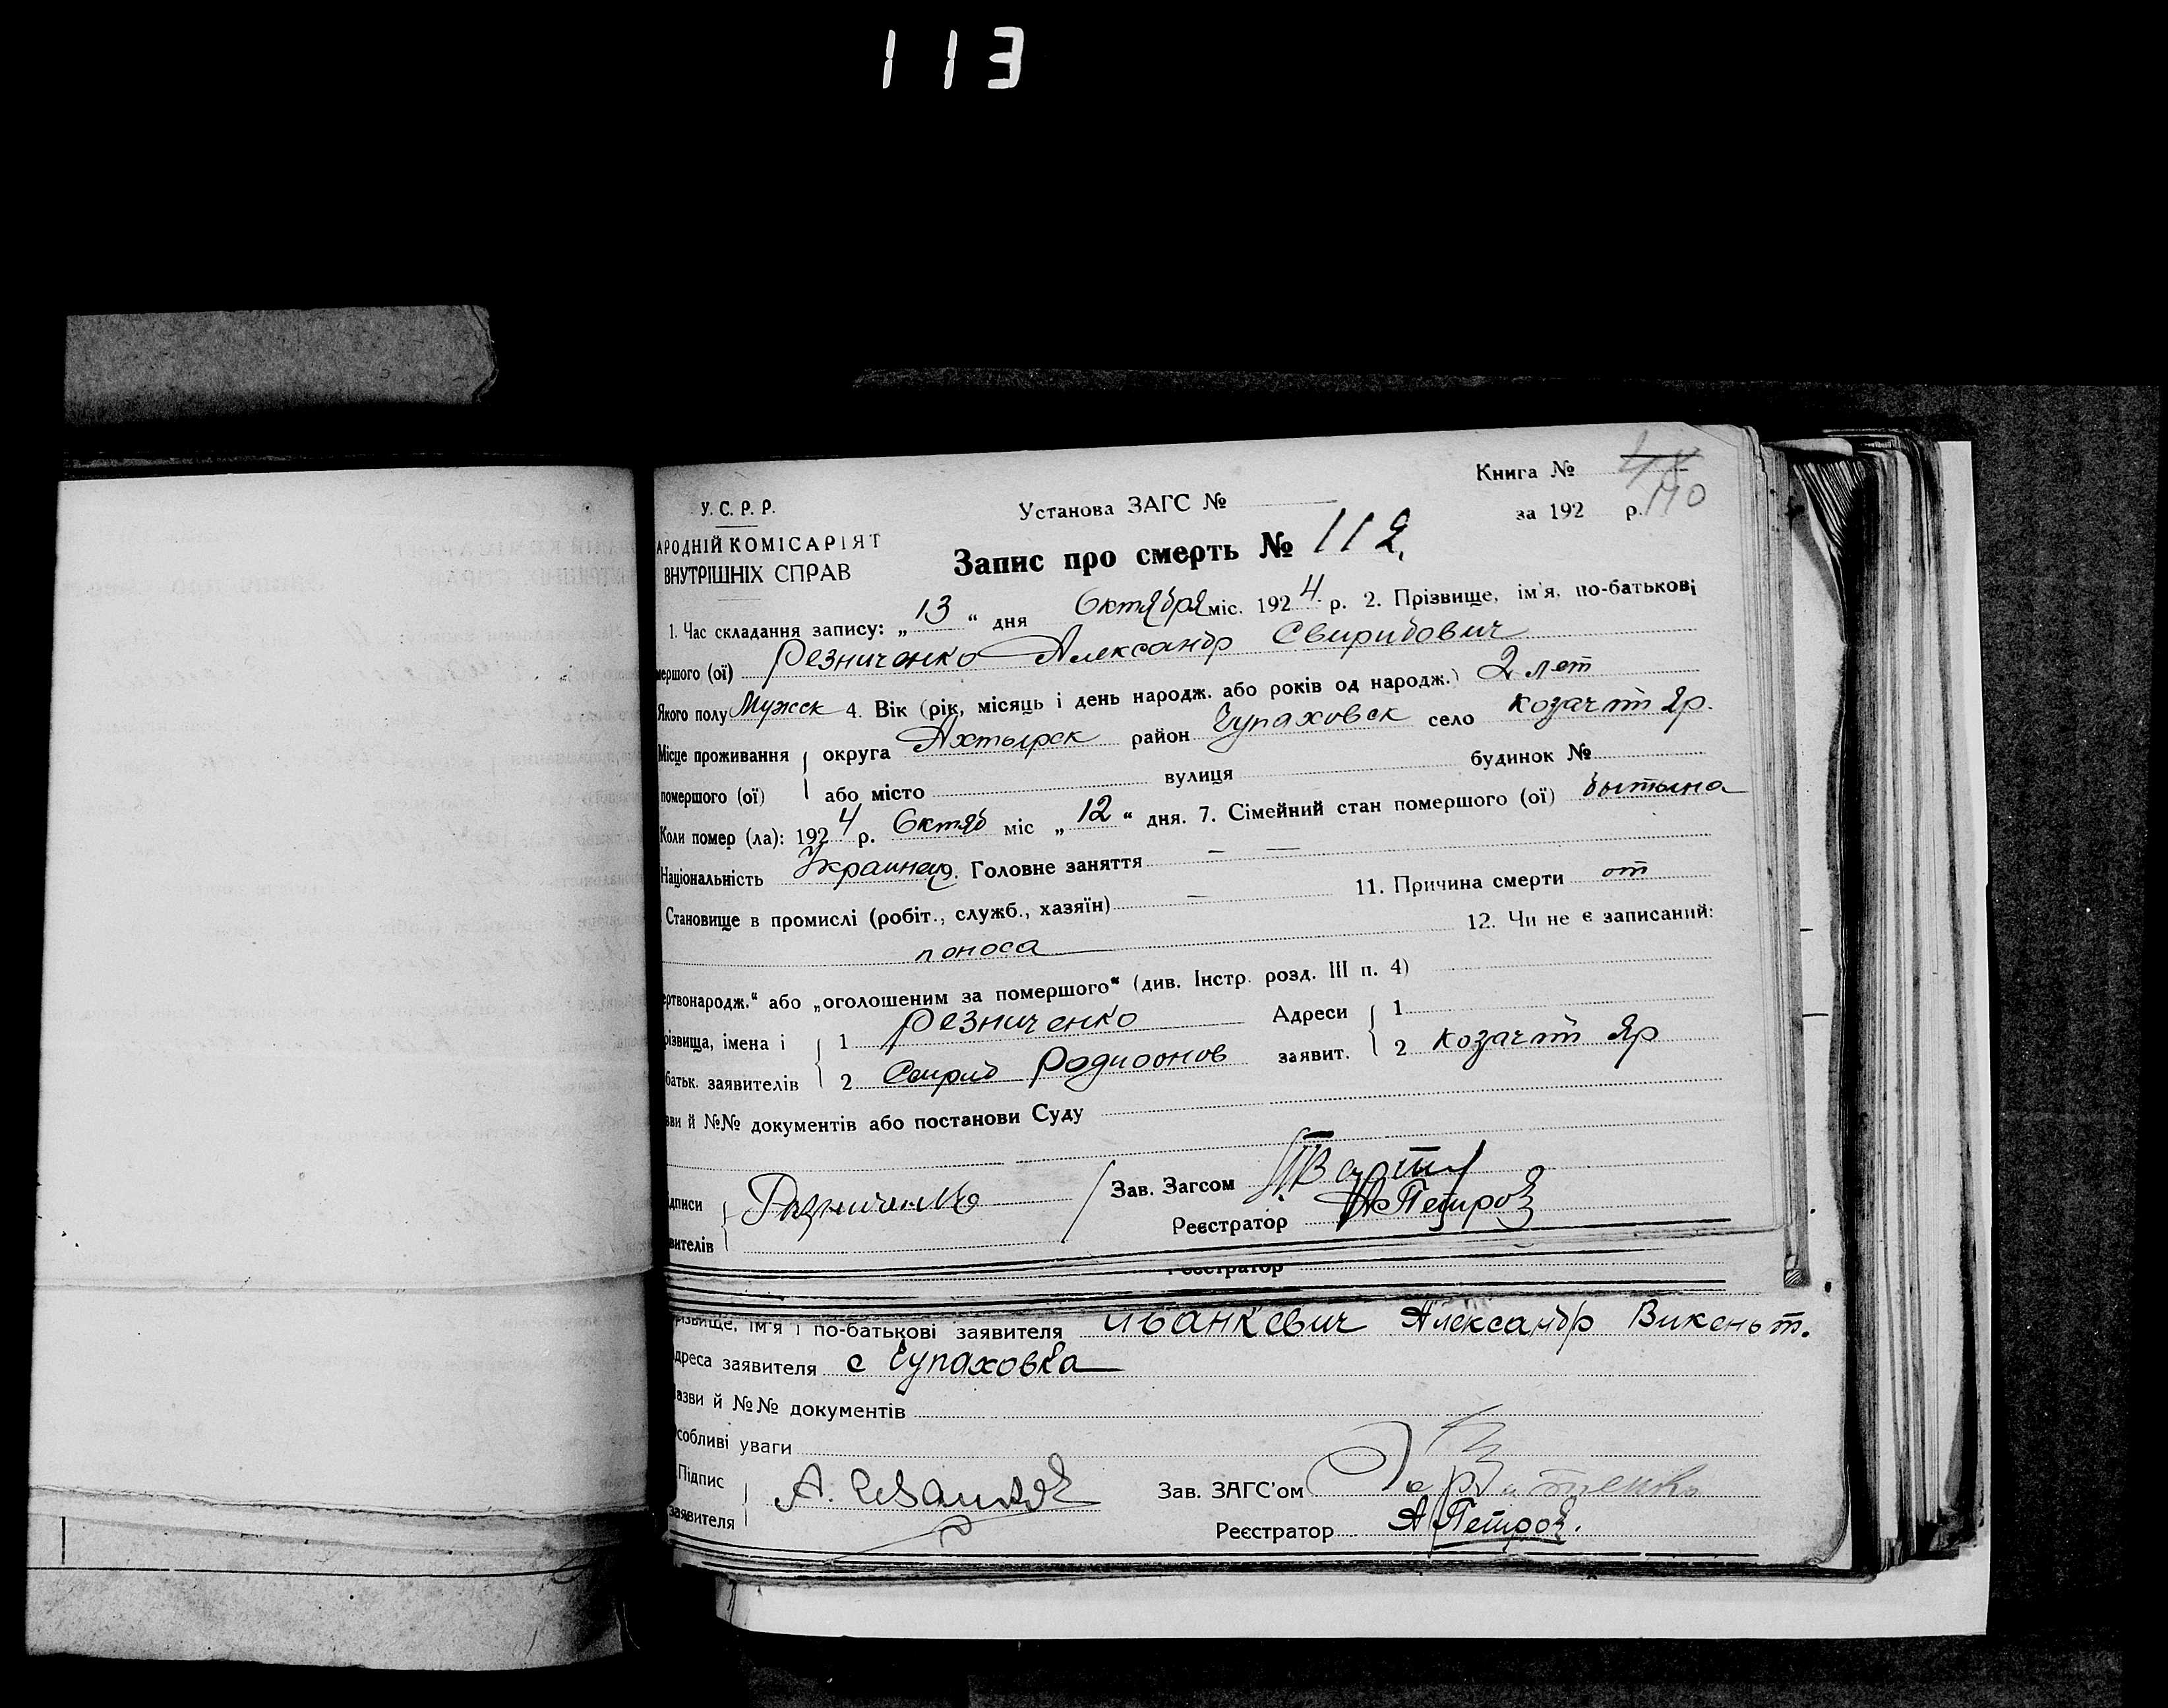 113
Книга №
У. С. Р. Р.
Установа ЗАГС №
за 192 р. 110
АРОДНІЙ КОМІСАРІЯТ
ВНУТРІШНІХ СПРАВ
Запис про смерть № 112.
1. Час складання запису: „13“ дня Октября міс. 1924 р. 2. Прізвище, ім'я, по-батькові
мершого (ої) Резниченко Александр Свиридович
Якого полу Мужск 4. Вік (рік, місяць і день народж. або років од народж.) 2 лет
Місце проживання округа Ахтырск район Чупаховск село Козачий Яр.
помершого (ої) або місто вулиця будинок №
Коли помер (ла): 1924 р. Октяб міс „12“ дня. 7. Сімейний стан помершого (ої)
Національність Украинец. Головне заняття — —
Становище в промислі (робіт., служб., хазяїн) — 11. Причина смерти от
поноса 12. Чи не є записаний:
ертвонародж.“ або „оголошеним за помершого“ (див. Інстр. розд. III п. 4)
різвища, імена і 1 Резниченко Адреси 1
батьк. заявителів 2 Свирид Родионов заявит. 2 Козачий Яр
зви й №№ документів або постанови Суду
дписи Зав. Загсом
вителів Реєстратор А Петров
Реєстратор
різвище, ім'я і по-батькові заявителя Иванкевич Александр Викеньт.
дреса заявителя с Чупаховка
азви й №№ документів
собливі уваги
Підпис А. Иванкев Зав. ЗАГС'ом
заявителя Реєстратор А Петров.